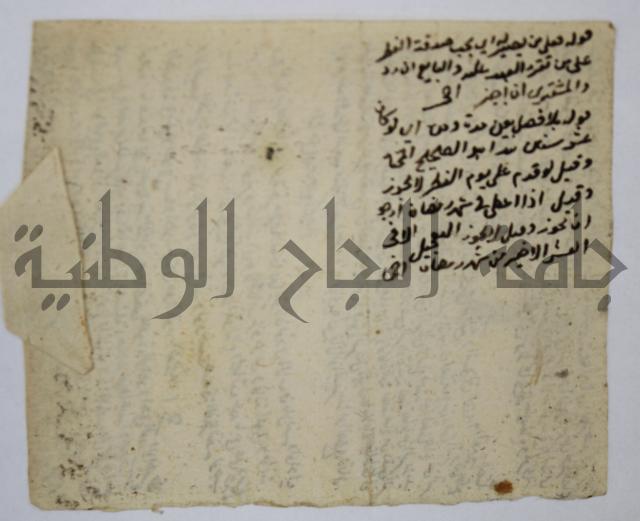 قوله فعلى من يصير له اي يجب صدقة الفطر
على من تقرر العبد عليه والبايع ان رد
والمشتري ان اجيز انتهى
قوله بلا فصل بين مدة ومدة اي لو كان
عشر سنين هذا هو الصحيح انتهى
وقيل لو قدم على يوم الفطر لا يجوز
وقيل اذا اعطى في شهر رمضان ارجو
ان يجوز وقيل لا يجوز التعجيل الا في
العشر الاخير من شهر رمضان انتهى
جامعة النجاح الوطنية